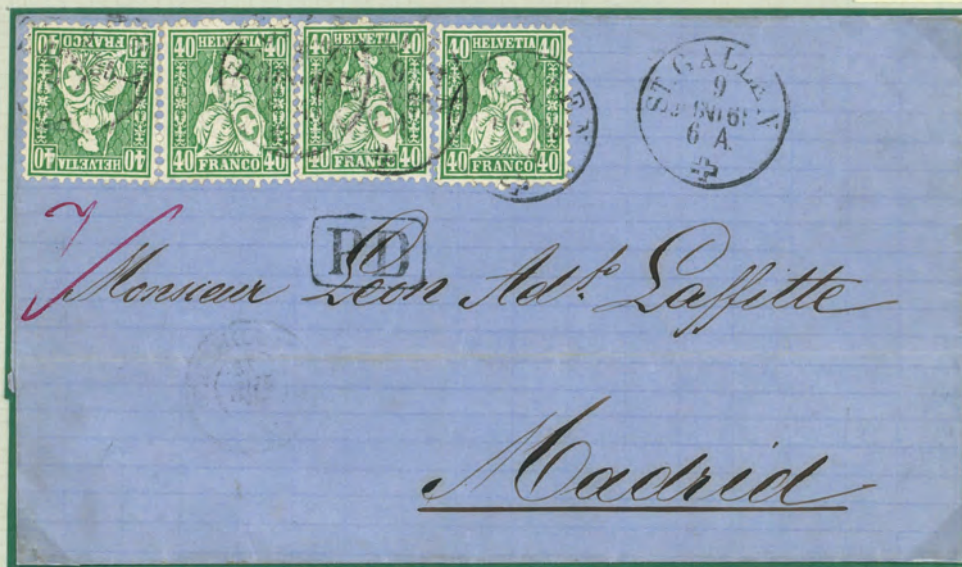 40 FRANCO 40
40 HELVETIA 40
40 HELVETIA 40
40 FRANCO 40
40 HELVETIA 40
40 FRANCO 40
40 HELVETIA 40
40 FRANCO 40
ST. GALLEN
9
6 A.
PD
Monsieur Léon Ad. Laffitte
Madrid